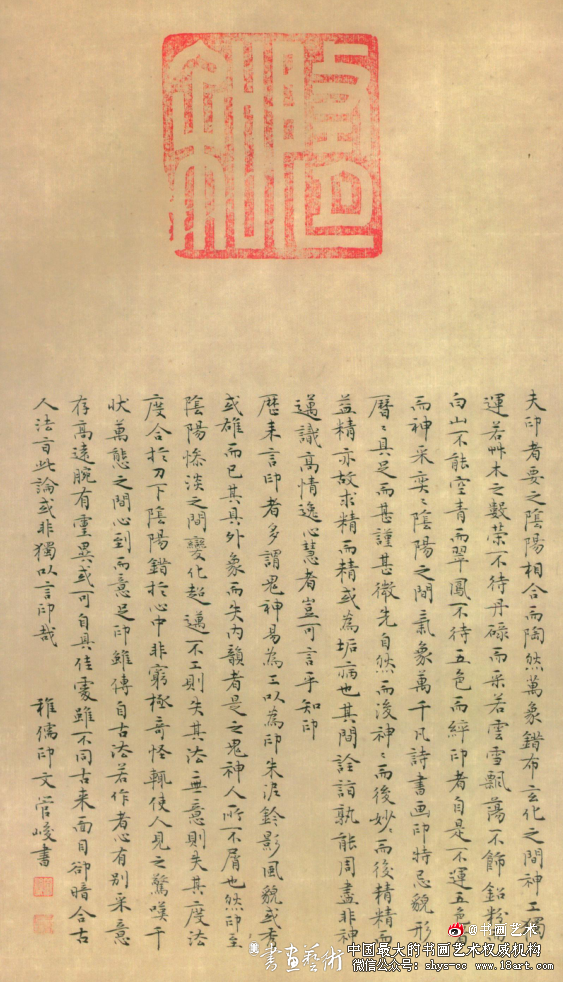 夫印者要之陰陽相合而陶然萬象錯布玄化之間神工獨
運若艸木之敷榮不待丹碌而采若雲雪飄蕩不飾鉛粉而
白山不能空青而翠鳳不待五色而綷印者自是不運五色
而神采奕〻陰陽之間氣象萬千凡詩書画印特忌貌形
曆〻具足而甚謹甚微先自然而後神〻而後妙〻而後精精而
益精亦故求精而精或為垢病也其間詮詣孰能周盡非神
邁識高情逸心慧者豈可言乎知印
歷来言印者多謂鬼神易為工以為印朱泥鈐影風貌或秀
或雄而已其具外象而失内韻者是之鬼神人所不屑也然印至
陰陽慘淡之間變化超邁不工則失其法無意則失其度法
度合於刀下陰陽錯於心中非窮極奇怪輒使人見之驚嘆千
狀萬態之間心到而意足印雖傳自古法若作者心有别采意
存高遠腕有靈異或可自具佳處雖不同古来面目卻暗合古
人法言此論或非獨以言印哉
稚儒印文管峻書
@书画艺术
書画藝術
中国最大的书画艺术权威机构
微信公众号：shys-cc www.18art.com